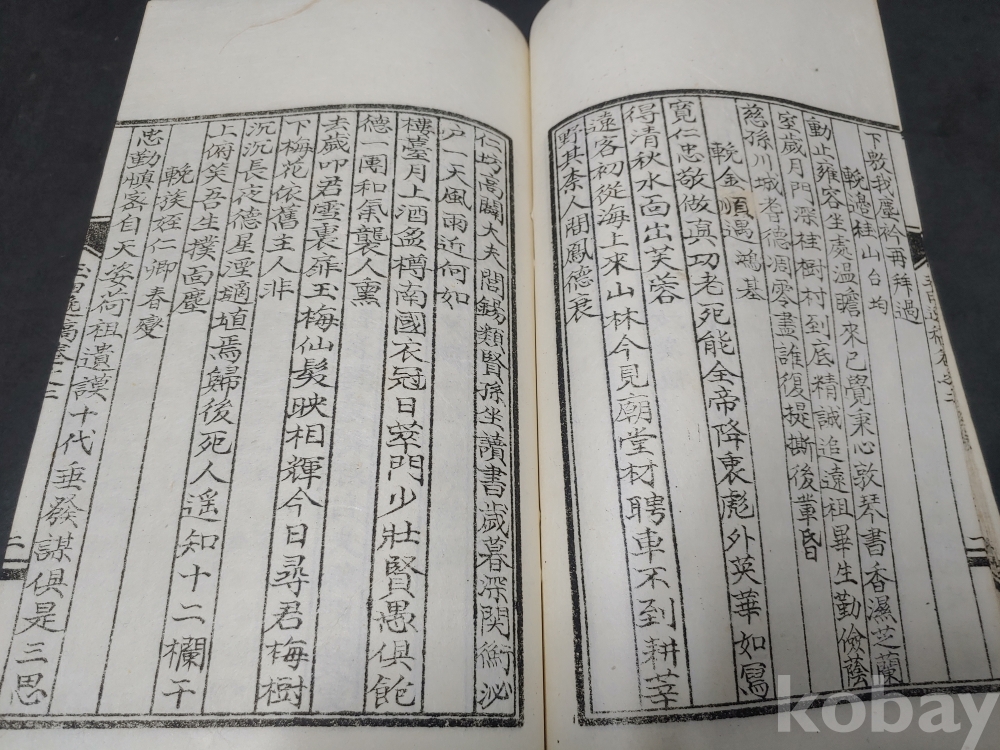 下敎我塵衿再拜過
輓邊桂山台均
動止雍容坐處温瞻來已覺秉心欽琴書香濕芝蘭
室歲月門深桂樹村到底精誠追遠祖畢生勤儉蔭
慈孫川城耆德凋零盡誰復提撕後軰昏
輓金順遇鴻基
寬仁忠敬做眞功老死能全帝降衷彪外英華如寫
得清秋水面出芙蓉
遠客初從海上來山林今見廟堂材聘車不到耕莘
野其柰人間鳳德衰
仁坊高閈大夫閭錫類賢孫坐讀書歲暮深関衡泌
戶一天風雨近何如
樓臺月上酒盈樽南國衣冠日萃門少壯賢愚俱飽
德一團和氣襲人熏
去歲叩君雲裏扉玉梅仙髮映相輝今日尋君梅樹
下梅花依舊主人非
沉沉長夜德星湮墑埴焉歸後死人遥知十二欄干
上俯笑吾生撲面塵
輓族姪仁卿春燮
忠勤愼客自天姿尚祖遺謨十代垂發謀俱是三思
二
kobay